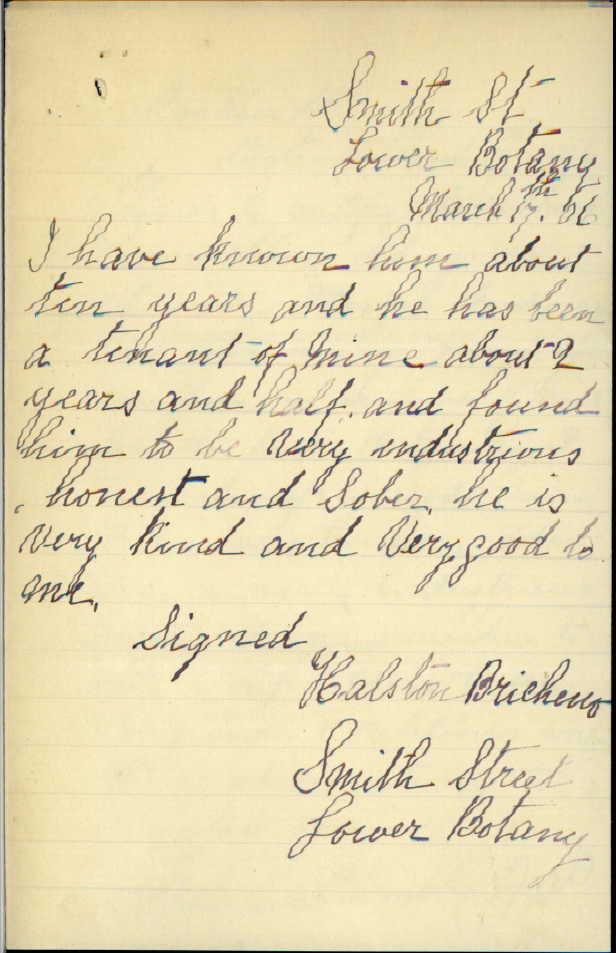 Smith St
Lower Botany
March 17th. 06
I have known him about
ten years and he has been
a tenant of mine about 2
years and half. and found
him to be Very industrious
, honest and Sober, he is
Very kind and Very good to
me,
Signed
Halston Bricheno
Smith Street
Lower Botany